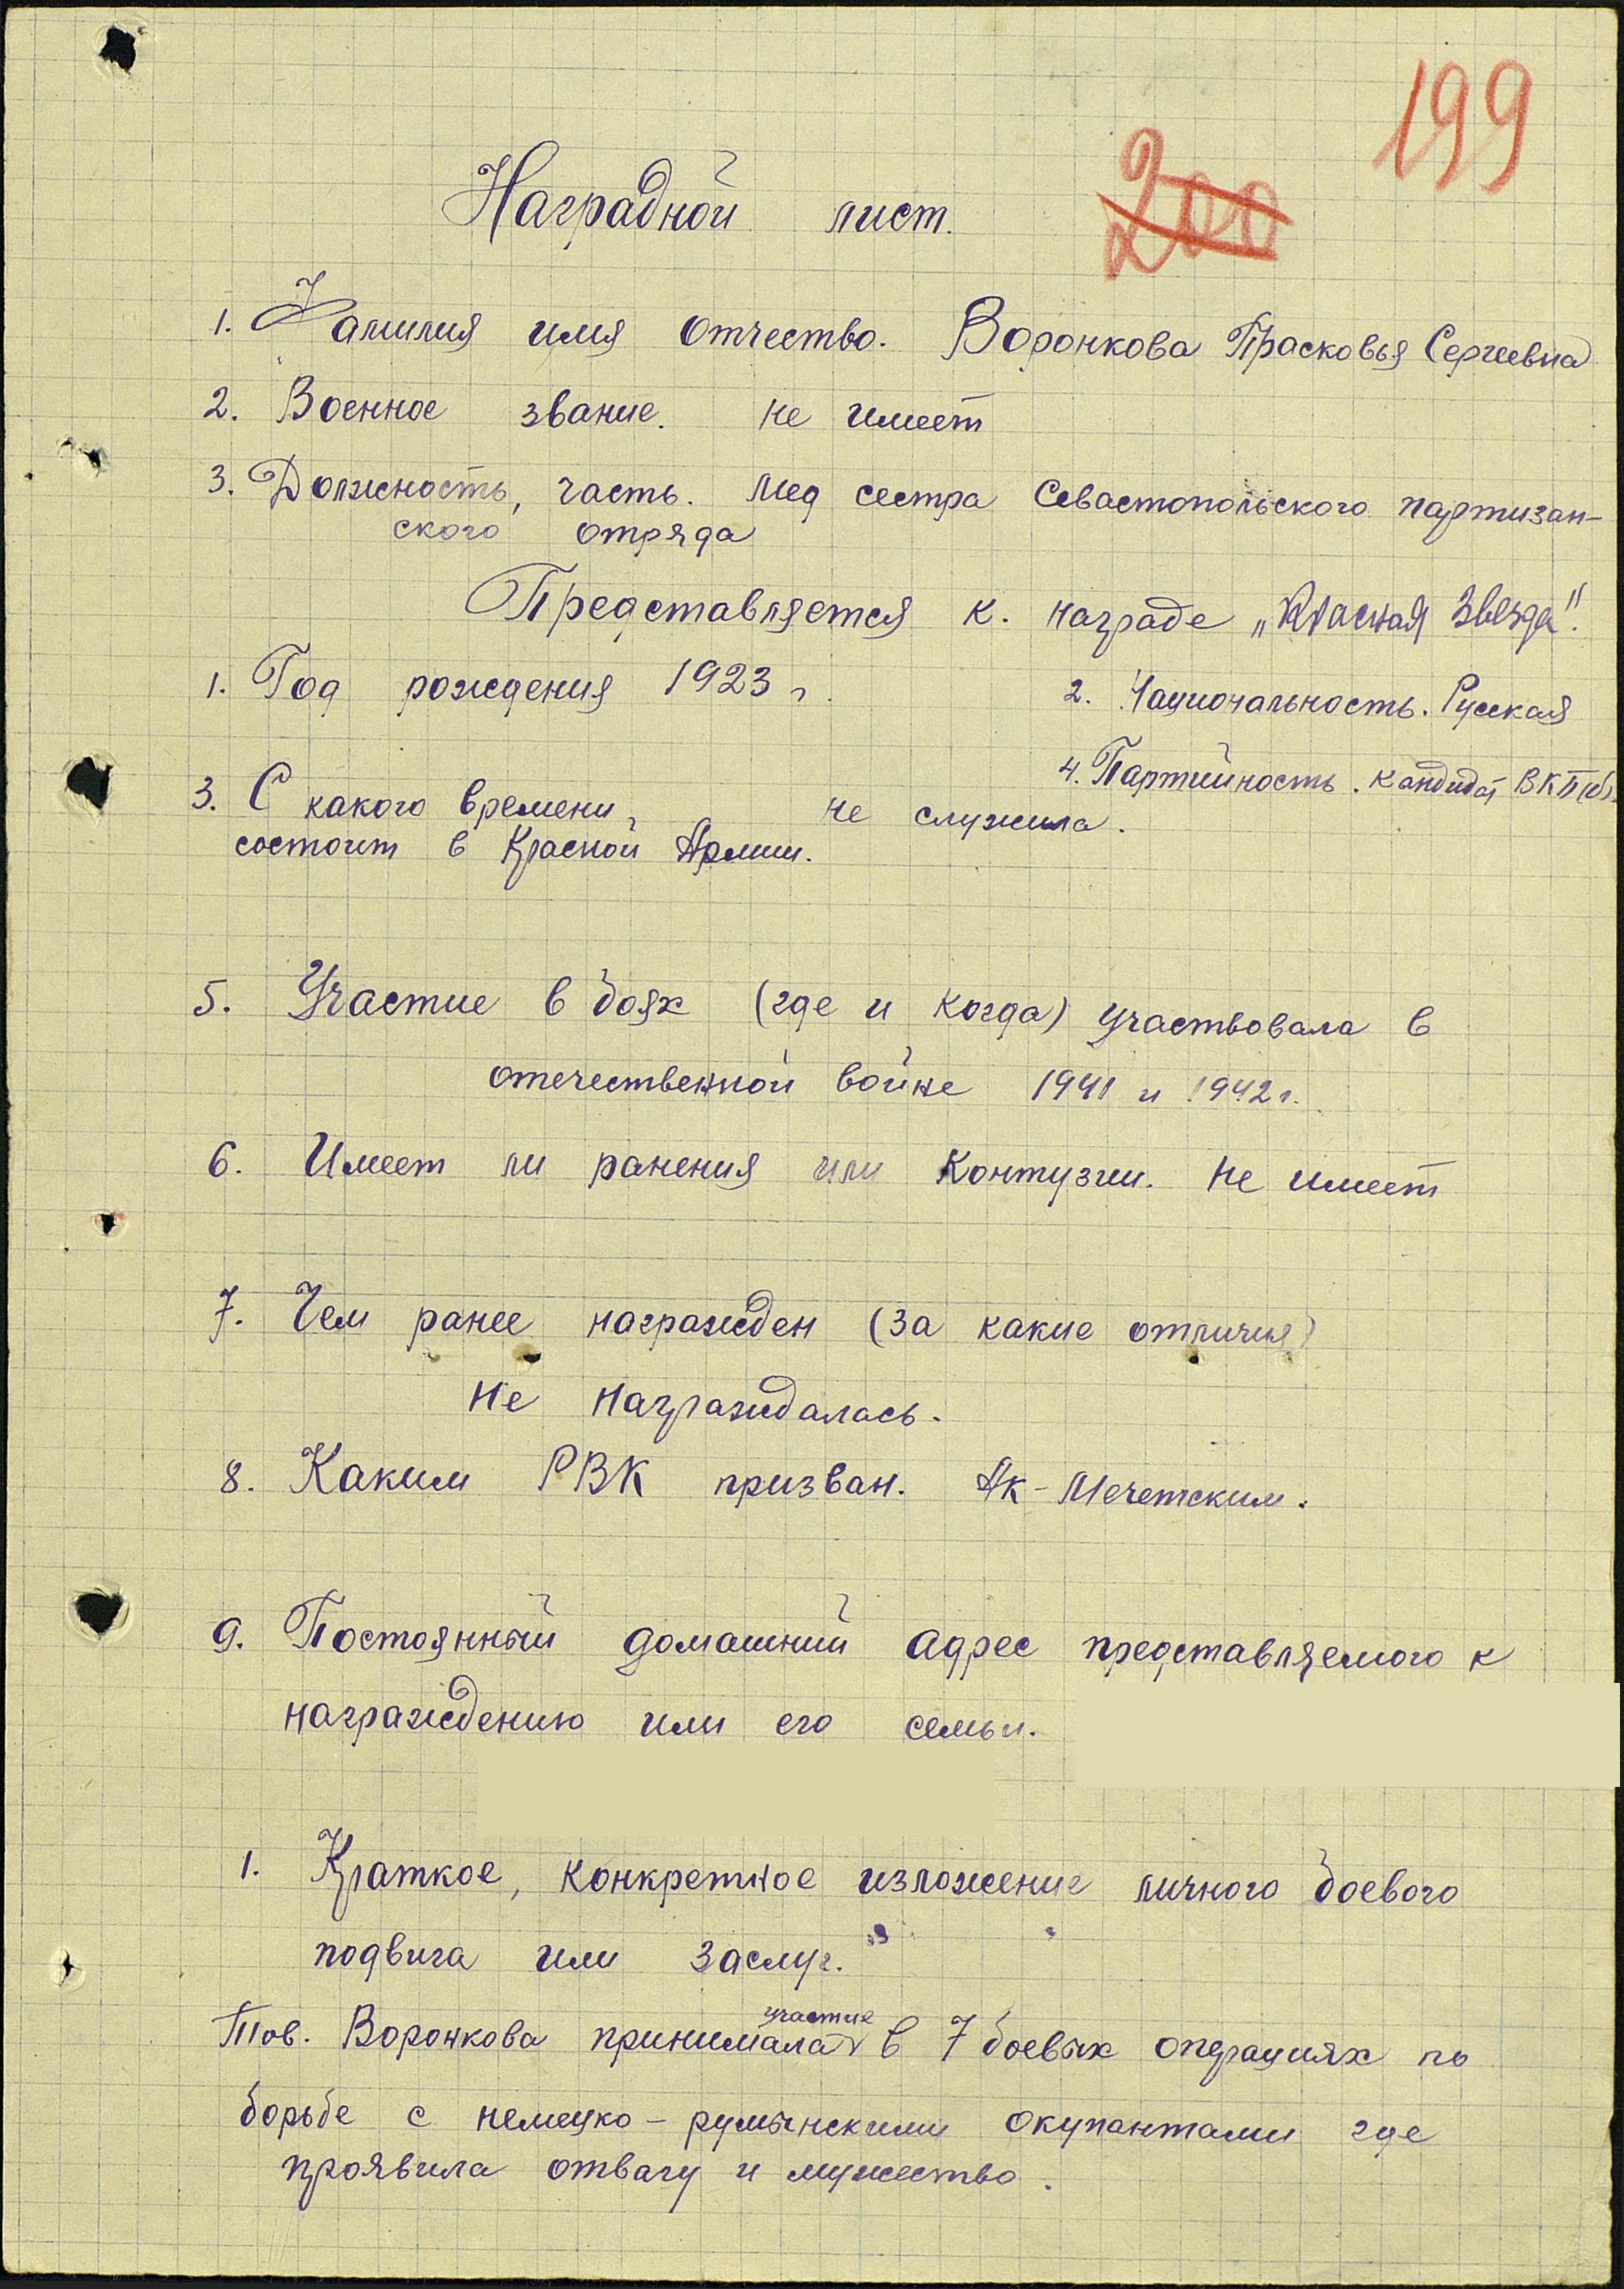 199
200
Наградной лист.
1. Фамилия имя отчество. Воронкова Прасковья Сергеевна
2. Военное звание. не имеет
3. Должность, часть. мед сестра Севастопольского партизан-
ского отряда
Представляется к. награде „Красная Звезда".
1. Год рождения 1923 г.
2. Национальность. Русская
4. Партийность. кандидат ВКП(б).
3. С какого времени, не служила.
состоит в Красной Армии.
5. Участие в боях (где и когда) участвовала в
отечественной войне 1941 и 1942 г.
6. Имеет ли ранения или контузии. не имеет
7. Чем ранее награжден (за какие отличия)
не награждалась.
8. Каким РВК призван. Ак-Мечетским.
9. Постоянный домашний адрес представляемого к
награждению или его семьи.
1. Краткое, конкретное изложение личного боевого
подвига или заслуг.
участие
Тов. Воронкова принимала в 7 боевых операциях по
борьбе с немецко-румынскими окупантами где
проявила отвагу и мужество.